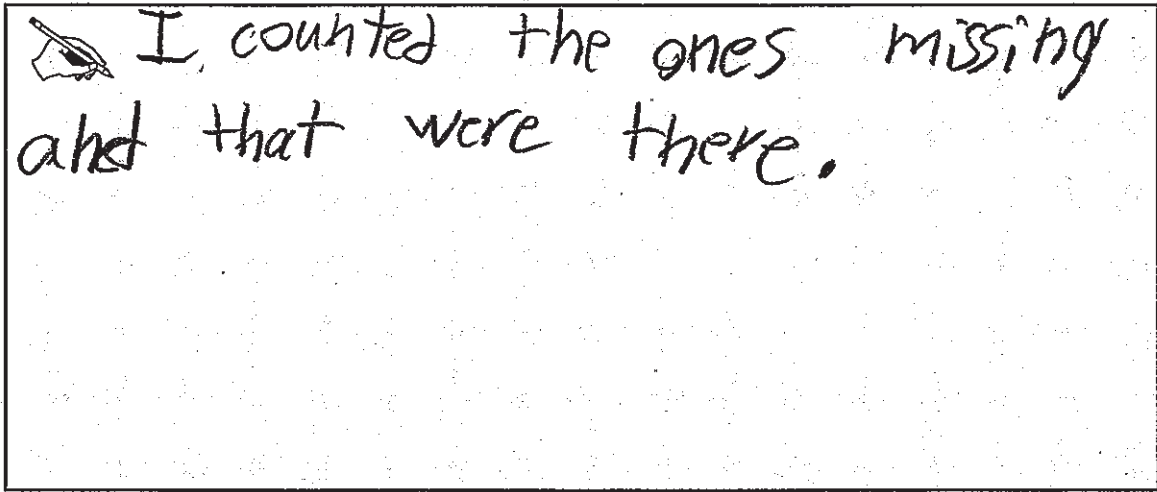 I counted the ones missing
and that were there.